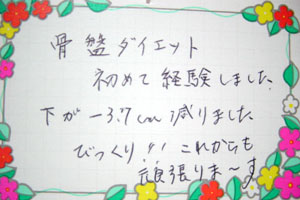 骨盤ダイエット
初めて経験しました
下が-3.7cm減りました
びっくり!! これからも
頑張りま〜す